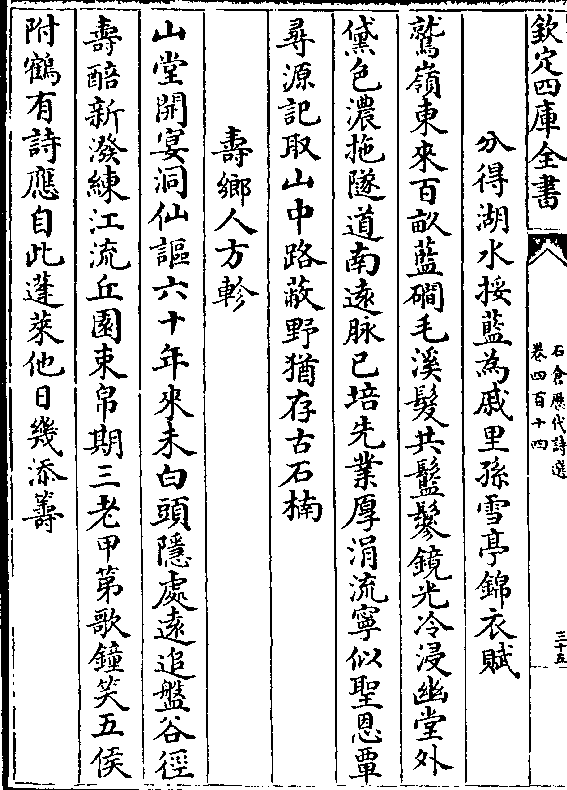 欽定四庫全書
石倉歷代詩選
卷四百十四
三十五
分得湖水挼藍為戚里孫雪亭錦衣賦
鷲嶺東來百畝藍磵毛溪髮共鬖鬖鏡光冷浸幽堂外
黛色濃拖隧道南遠脉已培先業厚涓流寧似聖恩覃
尋源記取山中路蔽野猶存古石楠
壽鄉人方軫
山堂開宴洞仙謳六十年來未白頭隱處遠追盤谷徑
壽醅新潑練江流丘園束帛期三老甲第歌鐘笑五侯
附鶴有詩應自此蓬萊他日幾添籌